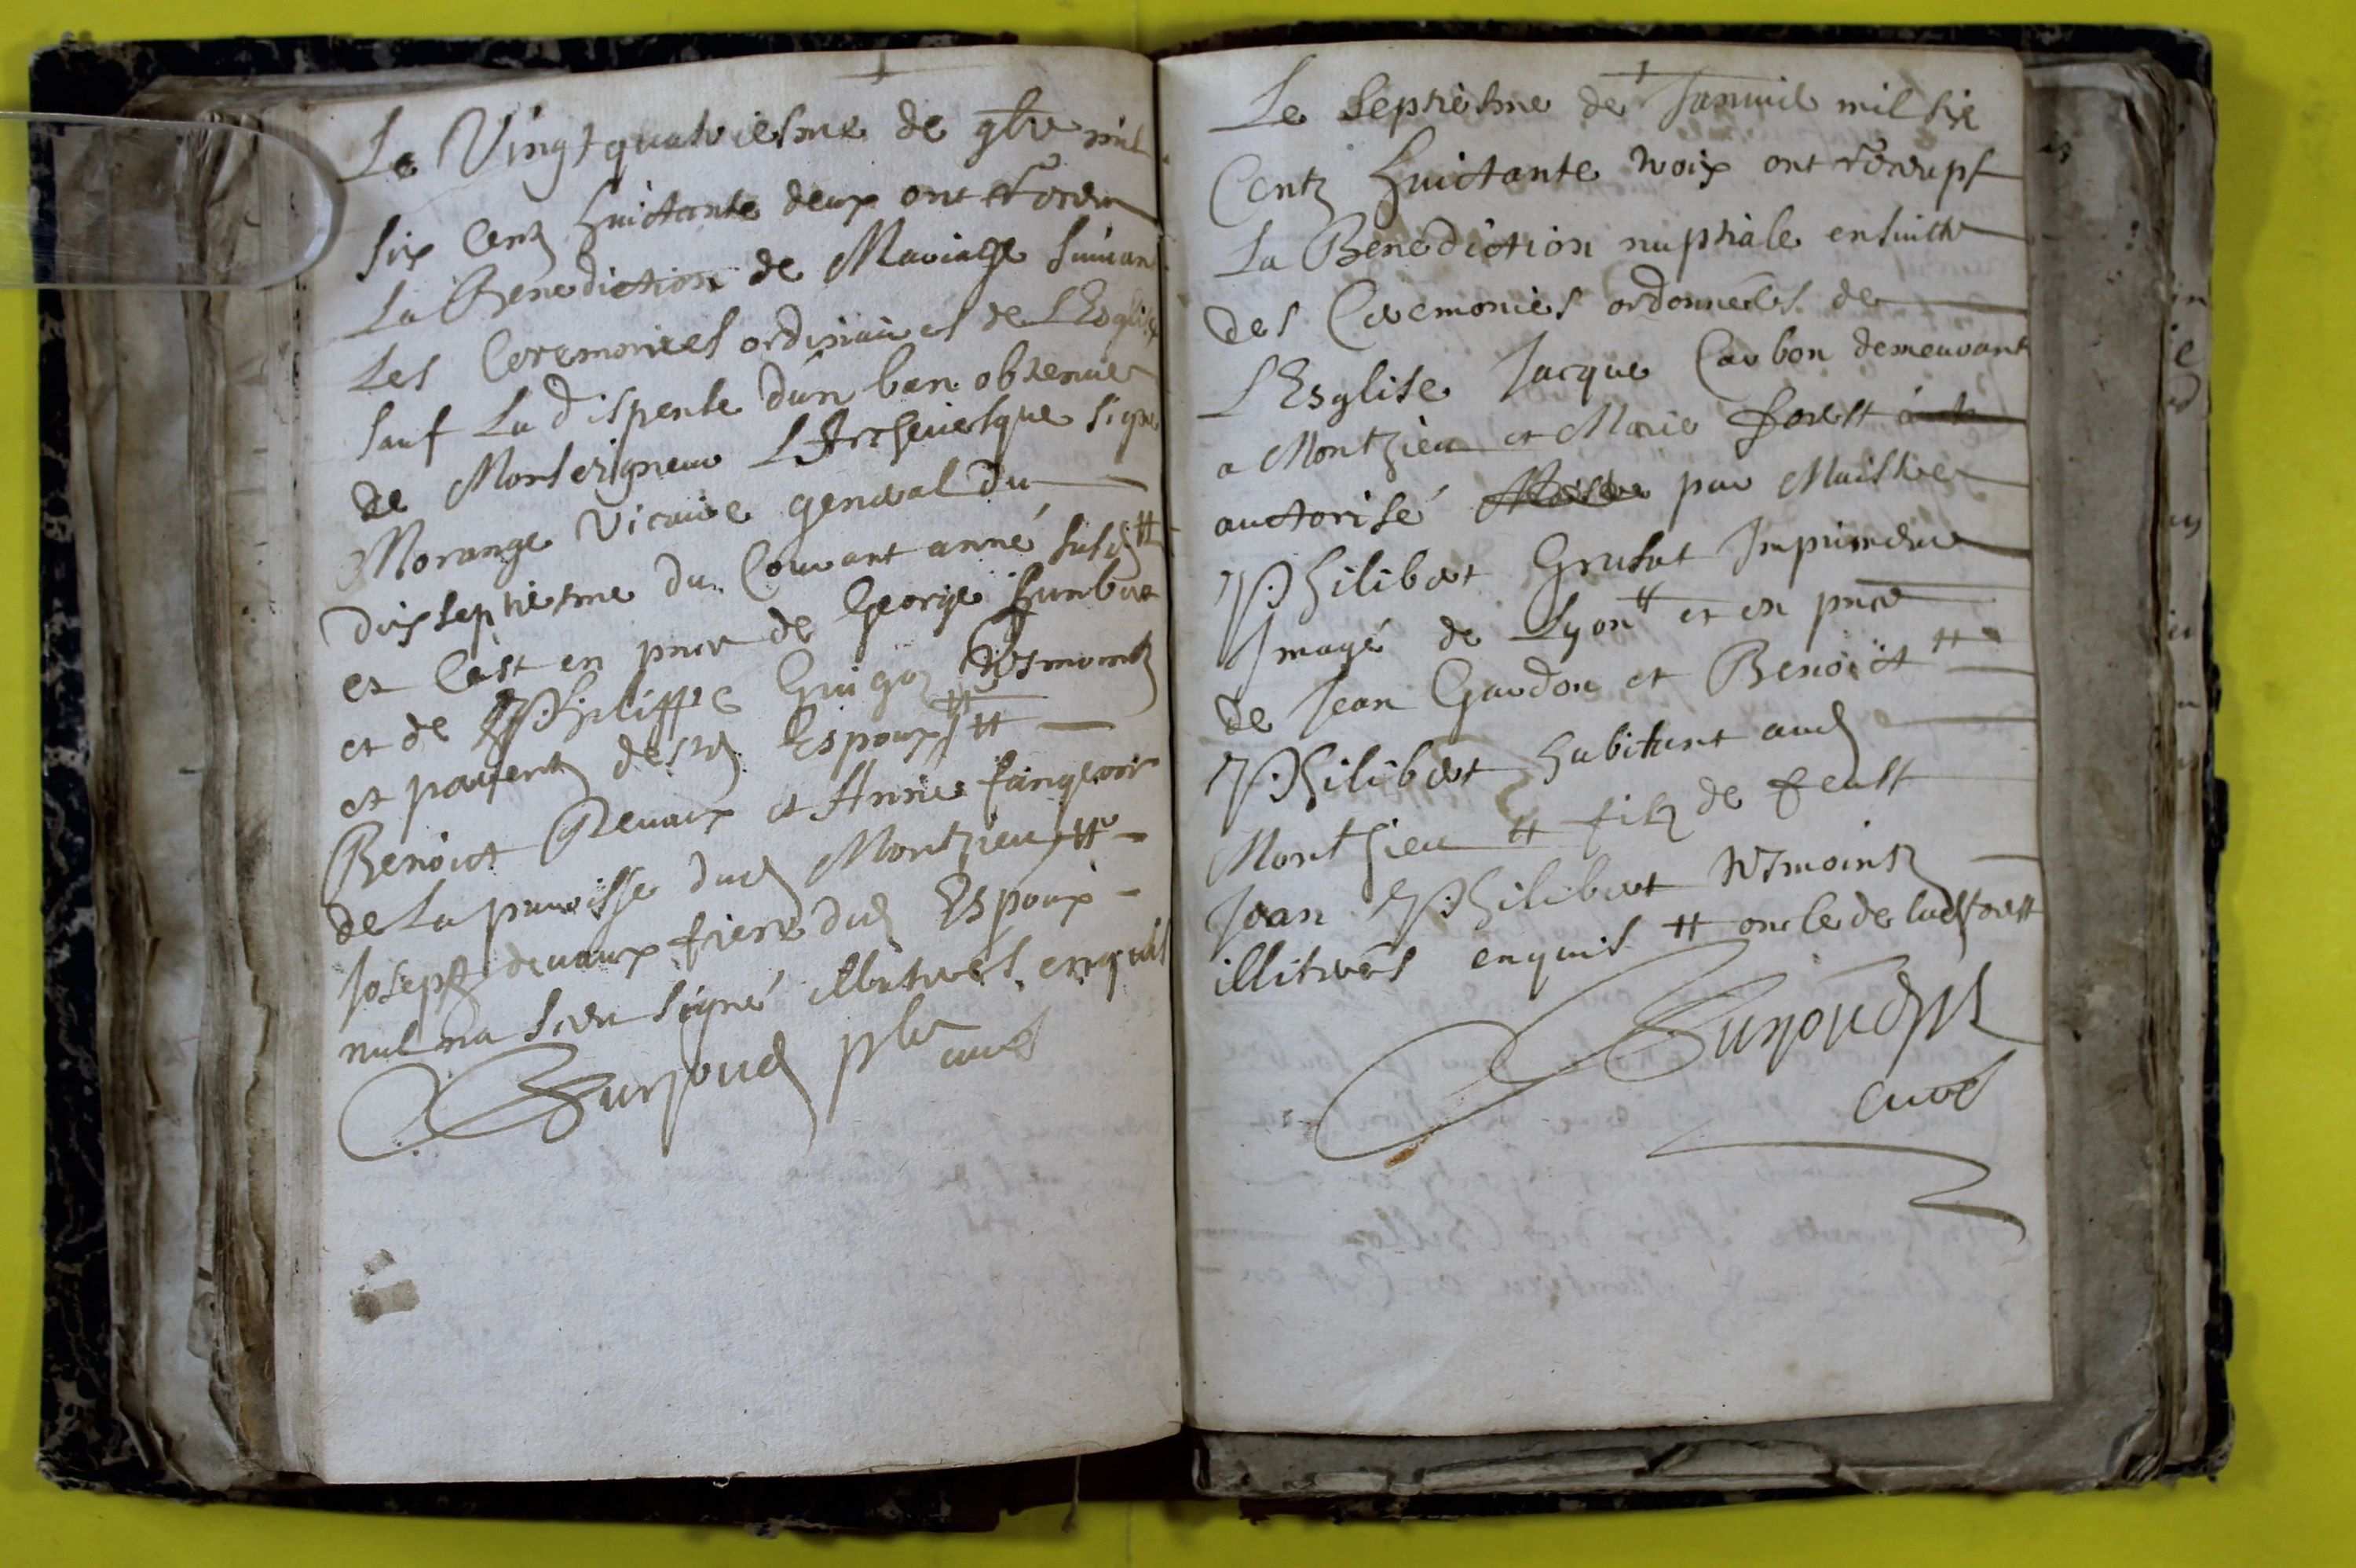 Le Vingt quatriesme de 9bre mil
six Centz huictante deux ont receu
La Benediction de Mariage suiuan
Les Ceremonies ordinaires de L'Esglise
sauf La dispense d'un ban obtenue
de Monseigneur L'Archeuesque signe
Morange Vicaire general du
dixseptiesme du Courant anné susd
et C'est en pnce de George humbert
et de Philippe Guigoz tesmointz
et parentz desd Espoux
Benoict Deuaux et Annie
de La parroisse dud Montzieu
Joseph deuaux frere dud Espoux
nul na sceu signé illitrés enquis
pbre curé
Le septiesme de Januié mil six
Centz huictante troix ont
La Benediction nuptiale ensuitte
des Ceremonies ordonnées de
L'Esglise Jacque Carbon demeurant
a Montzieu et Marie forest
auctorisé par Maistre
Philibert Grusat Imprimeur
Imagé de Lyon et en pnce
de Jean Gardon et Benoict
Philibert habitant aud
Montzieu filz de feust
Jean Philibert tesmointz
illitrés enquis oncle de lad forest
curé